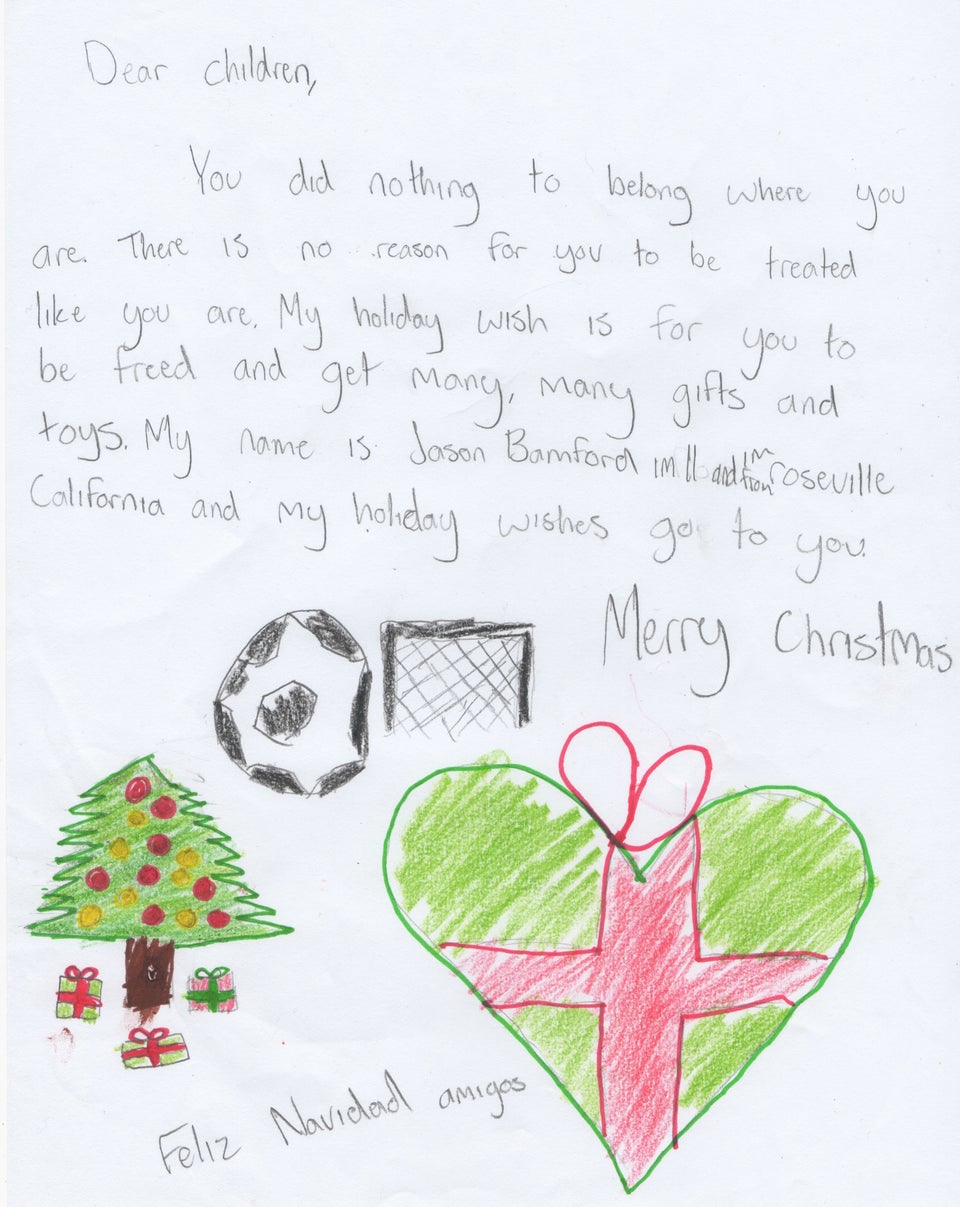 Dear children,
You did nothing to belong where you
are. There is no reason for you to be treated
like you are. My holiday wish is for you to
be freed and get many, many gifts and
toys. My name is Jason Bamford im 11 and im from roseville
California and my holiday wishes go to you.
Merry Christmas
Feliz Navidad amigos